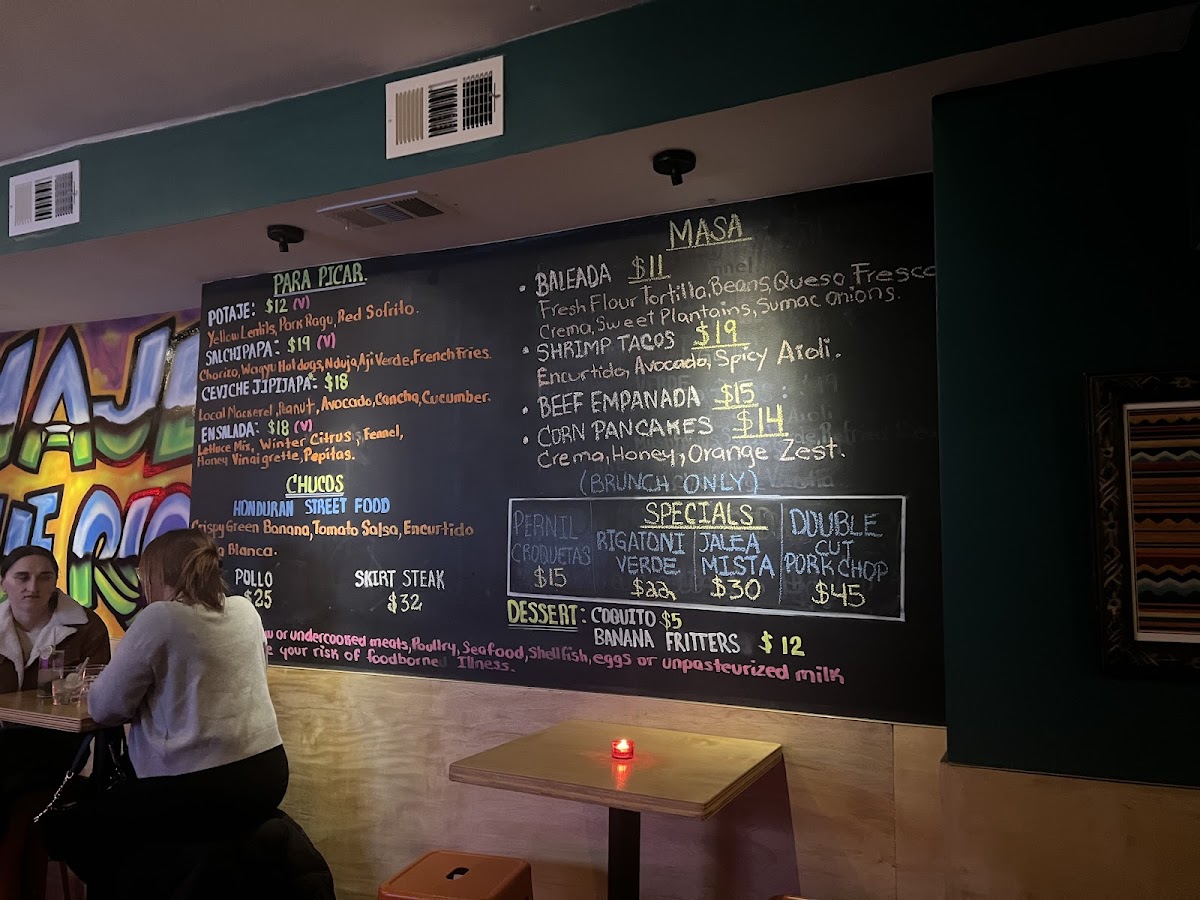 PARA PICAR
POTAJE: $12 (V)
Yellow Lentils, Pork Ragu, Red Sofrito.
SALCHIPAPA: $19 (V)
Chorizo, Wagyu Hotdogs, Nduja, Aji Verde, French Fries.
CEVICHE JIPIJAPA: $18
Local Mackerel, Peanut, Avocado, Cancha, Cucumber.
ENSALADA: $18 (V)
Lettuce Mix, Winter Citrus, Fennel,
Honey Vinaigrette, Pepitas.
CHUCOS
HONDURAN STREET FOOD
Crispy Green Banana, Tomato Salsa, Encurtido
Blanca.
POLLO
$25
SKIRT STEAK
$32
MASA
• BALEADA $11
Fresh Flour Tortilla, Beans, Queso Fresco
Crema, Sweet Plantains, Sumac onions.
• SHRIMP TACOS $19
Encurtido, Avocado, Spicy Aioli.
• BEEF EMPANADA $15
• CORN PANCAKES $14
Crema, Honey, Orange Zest.
(BRUNCH ONLY)
SPECIALS
PERNIL
CROQUETAS
$15
RIGATONI
VERDE
$22
JALEA
MISTA
$30
DOUBLE
CUT
PORK CHOP
$45
DESSERT: COQUITO $5
BANANA FRITTERS $12
or undercooked meats, Poultry, Seafood, Shellfish, eggs or unpasteurized milk
your risk of foodborned Illness.